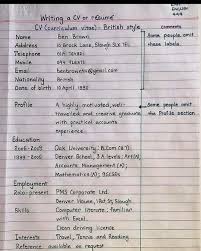 Writing a CV or résumé
CV (curriculum vitae) - British style
comments
Name Ben Brown
Some people omit
Address 10 Brock Lane, Slough SLX 7EL
these labels.
Telephone
Mobile
Email
Nationality British
Date of birth 10 April 1980
Profile A highly-motivated, well-
Some people omit
travelled and creative graduate
the Profile section
with practical accounts
experience.
Education
Oak University: B/Com (2:1)
Denver School: 3 A levels: Art(A),
Accounts, Management (A)
Mathematics (A); 9GCSEs
Employment
2010-present PMS Corporate Ltd.
Denver House, Slough
Skills Computer literate: familiar
with Excel.
Clean driving licence
Interests Travel, Tennis and Reading
Reference available on request